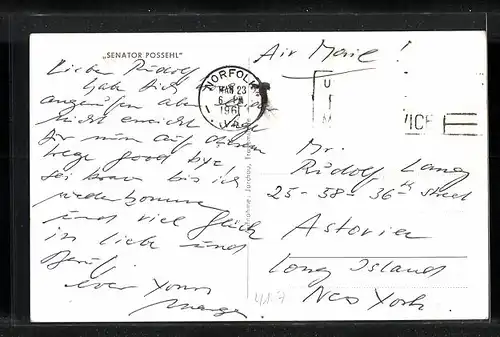 „SENATOR POSSEHL"
Air Mail!
Lieber Rudolf
hab Dich
angerufen aber
nicht erreicht
Dir nun auf diesem
Wege good bye
sei brav bis ich
wiederkomme
und viel Glück
in Liebe und
Beruf.
ever Yours
NORFOLK
MAR 23
6 PM
1961
VA.
Mr.
Rudolf Lang
25-58-36th Street
Astoria
Long Island
New York.